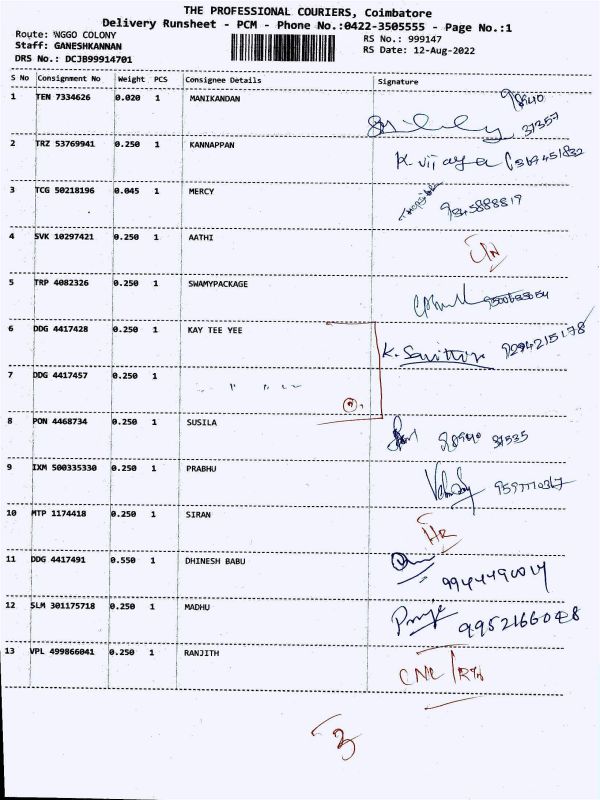 THE PROFESSIONAL COURIERS, Coimbatore
Delivery Runsheet - PCM - Phone No.:0422-3505555 - Page No.:1
Route: NGGO COLONY
Staff: GANESHKANNAN
DRS No.: DCJB99914701
RS No.: 999147
RS Date: 12-Aug-2022
S No Consignment No Weight PCS Consignee Details Signature
1 TEN 7334626 0.020 1 MANIKANDAN 98940 31357
2 TRZ 53769941 0.250 1 KANNAPPAN K. vijaya
3 TCG 50218196 0.045 1 MERCY
4 SVK 10297421 0.250 1 AATHI
5 TRP 4082326 0.250 1 SWAMYPACKAGE
6 DDG 4417428 0.250 1 KAY TEE YEE K.
7 DDG 4417457 0.250 1 " "
8 PON 4468734 0.250 1 SUSILA
9 IXM 500335330 0.250 1 PRABHU
10 MTP 1174418 0.250 1 SIRAN
11 DDG 4417491 0.550 1 DHINESH BABU
12 SLM 301175718 0.250 1 MADHU
13 VPL 499866041 0.250 1 RANJITH
3